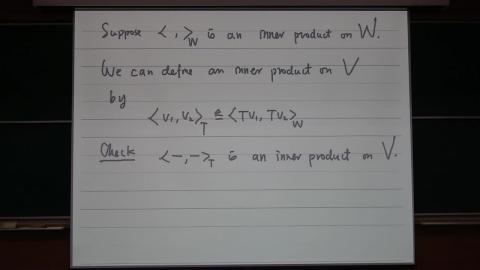 Suppose < , >_W is an inner product on W.
We can define an inner product on V
by
<v₁, v₂>_T ≝ <Tv₁, Tv₂>_W
Check <-,->_T is an inner product on V.